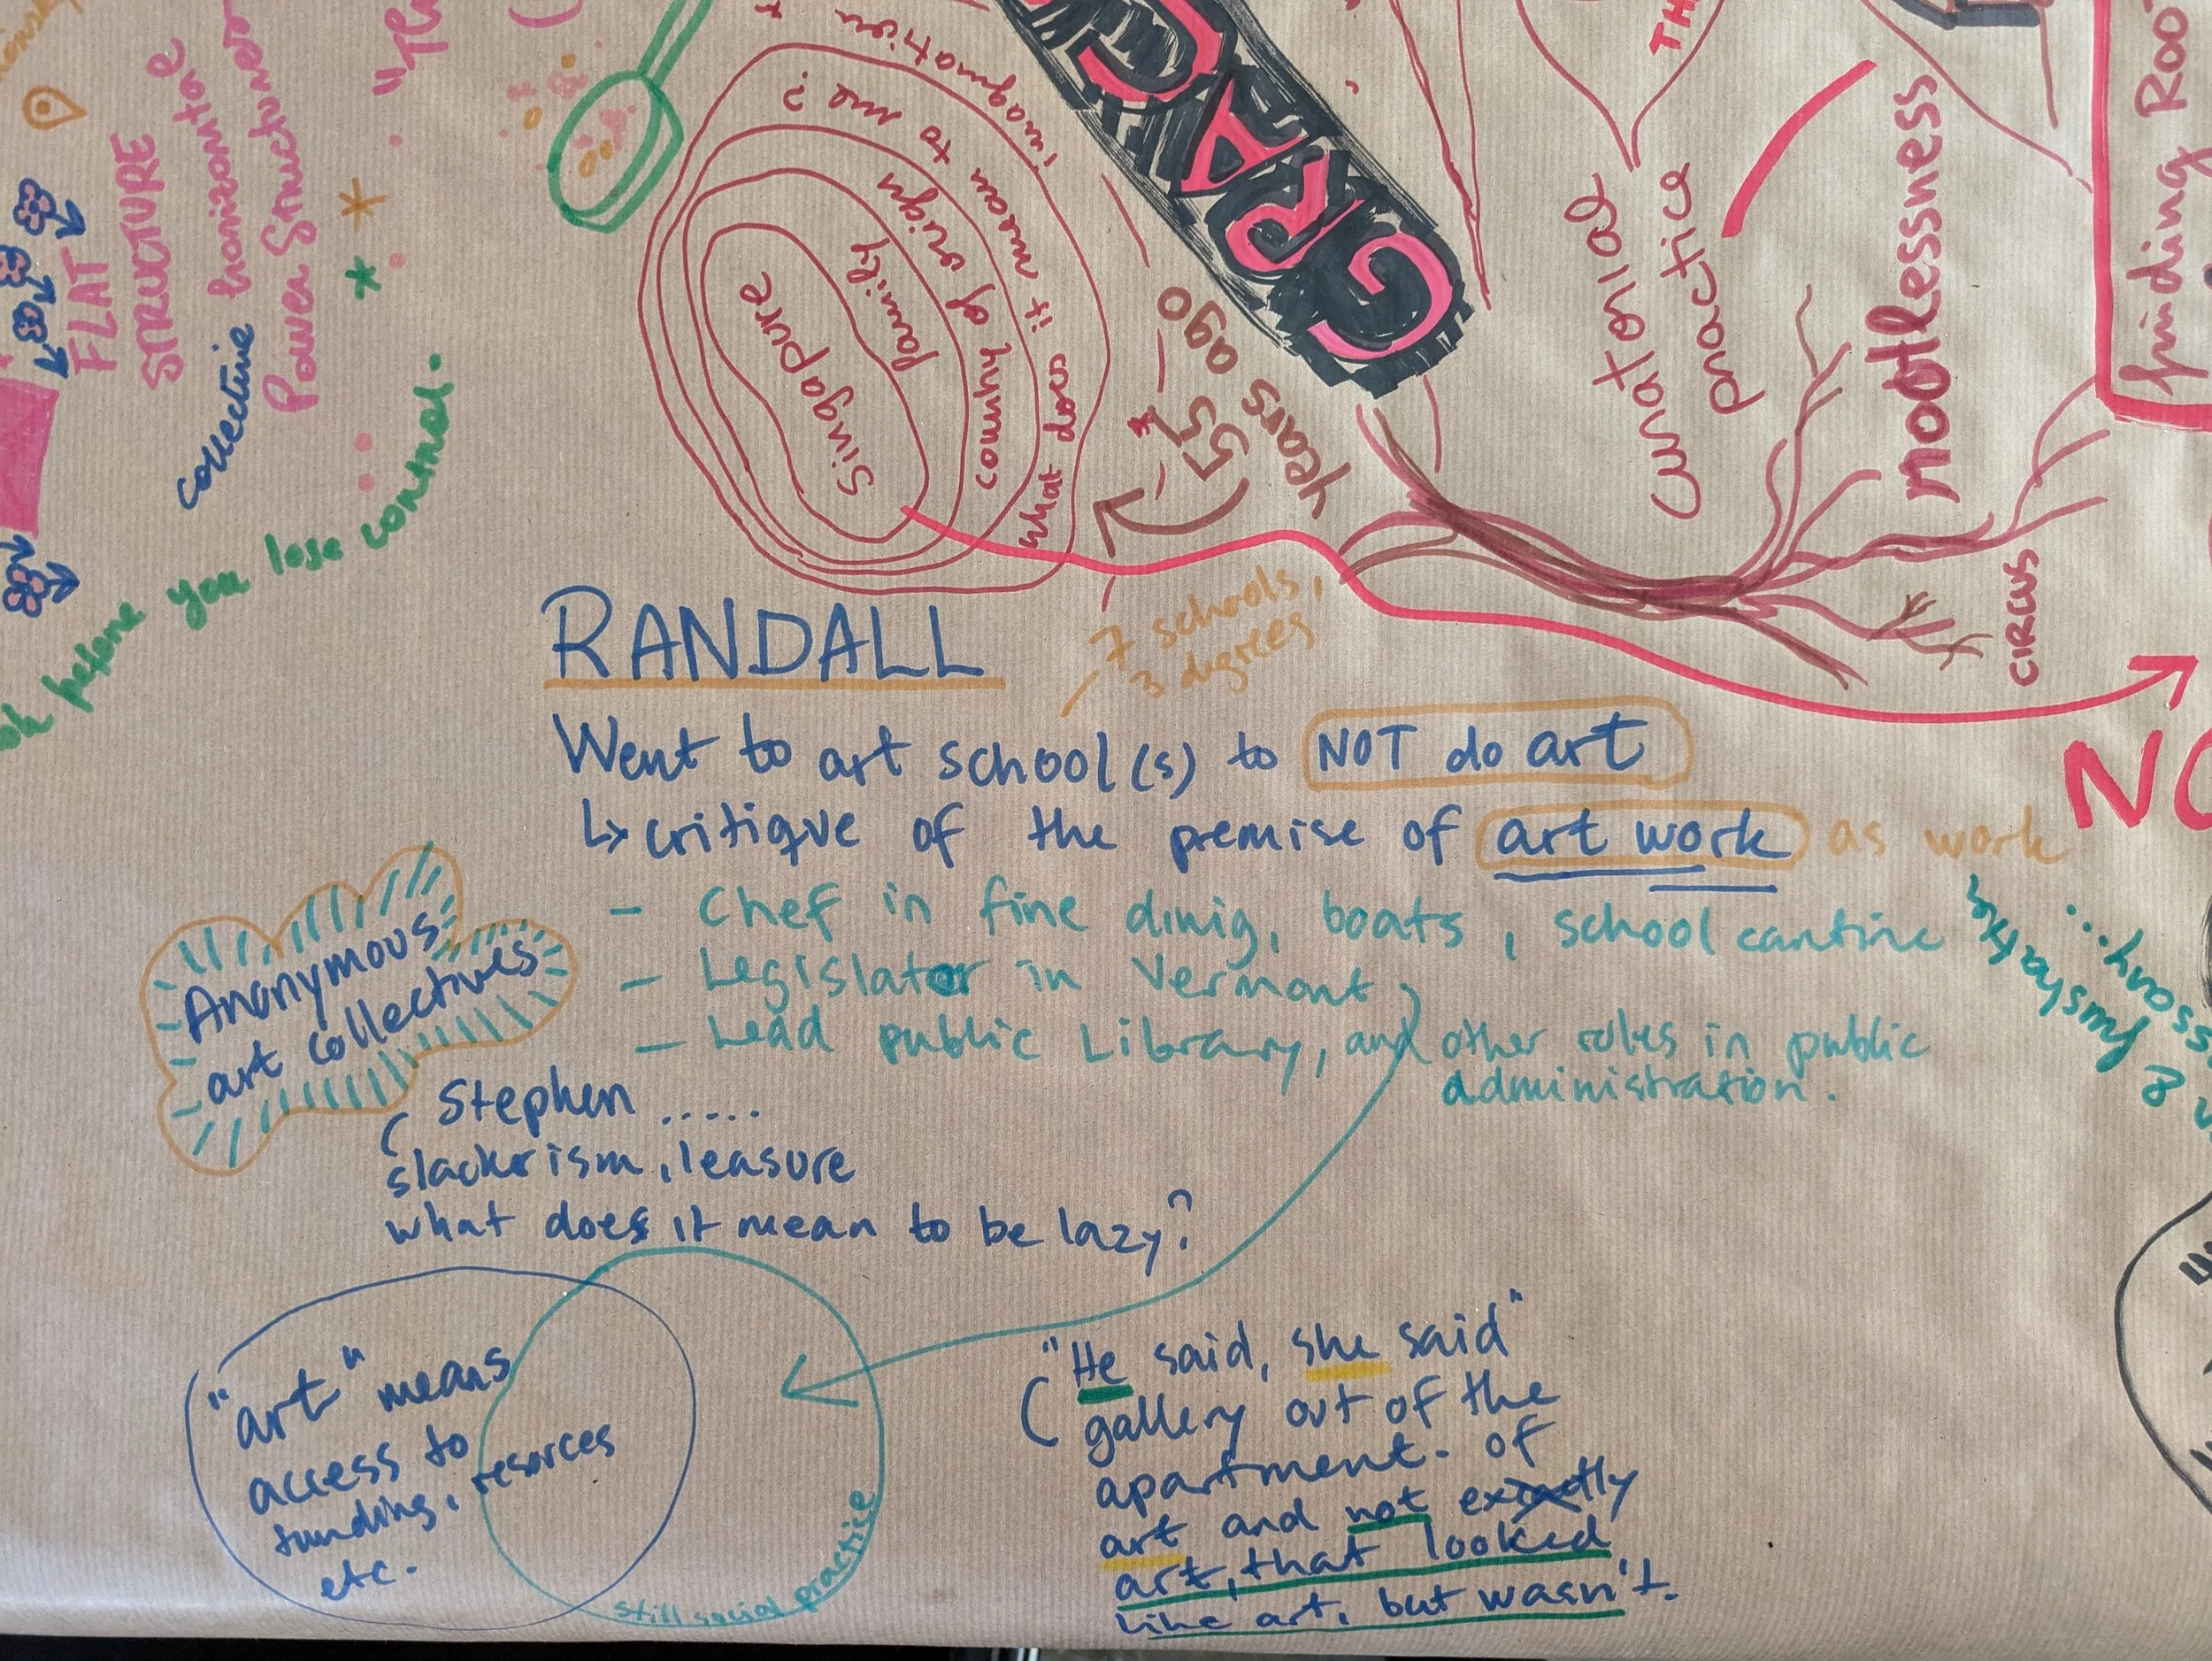 FLAT
STRUCTURE
collective horizontal
Power Structures
you lose control.
Singapure
family
country of origin
what does it mean to me?
GRACE
55
years ago
curatorial
practice
rootlessness
finding
CIRCUS
RANDALL
7 schools,
3 degrees
Went to art school(s) to NOT do art
↳ critique of the premise of art work as work
- Chef in fine dinig, boats, school cantine
- Legislator in Vermont
- Lead public Library, and other roles in public
administration.
Anonymous
art collectives
Stephen .....
slackerism, leasure
what does it mean to be lazy?
"art" means
access to
funding, resorces
etc.
still social practice
"He said, she said"
gallery out of the
apartment. of
art and not exactly
art, that looked
like art, but wasn't.